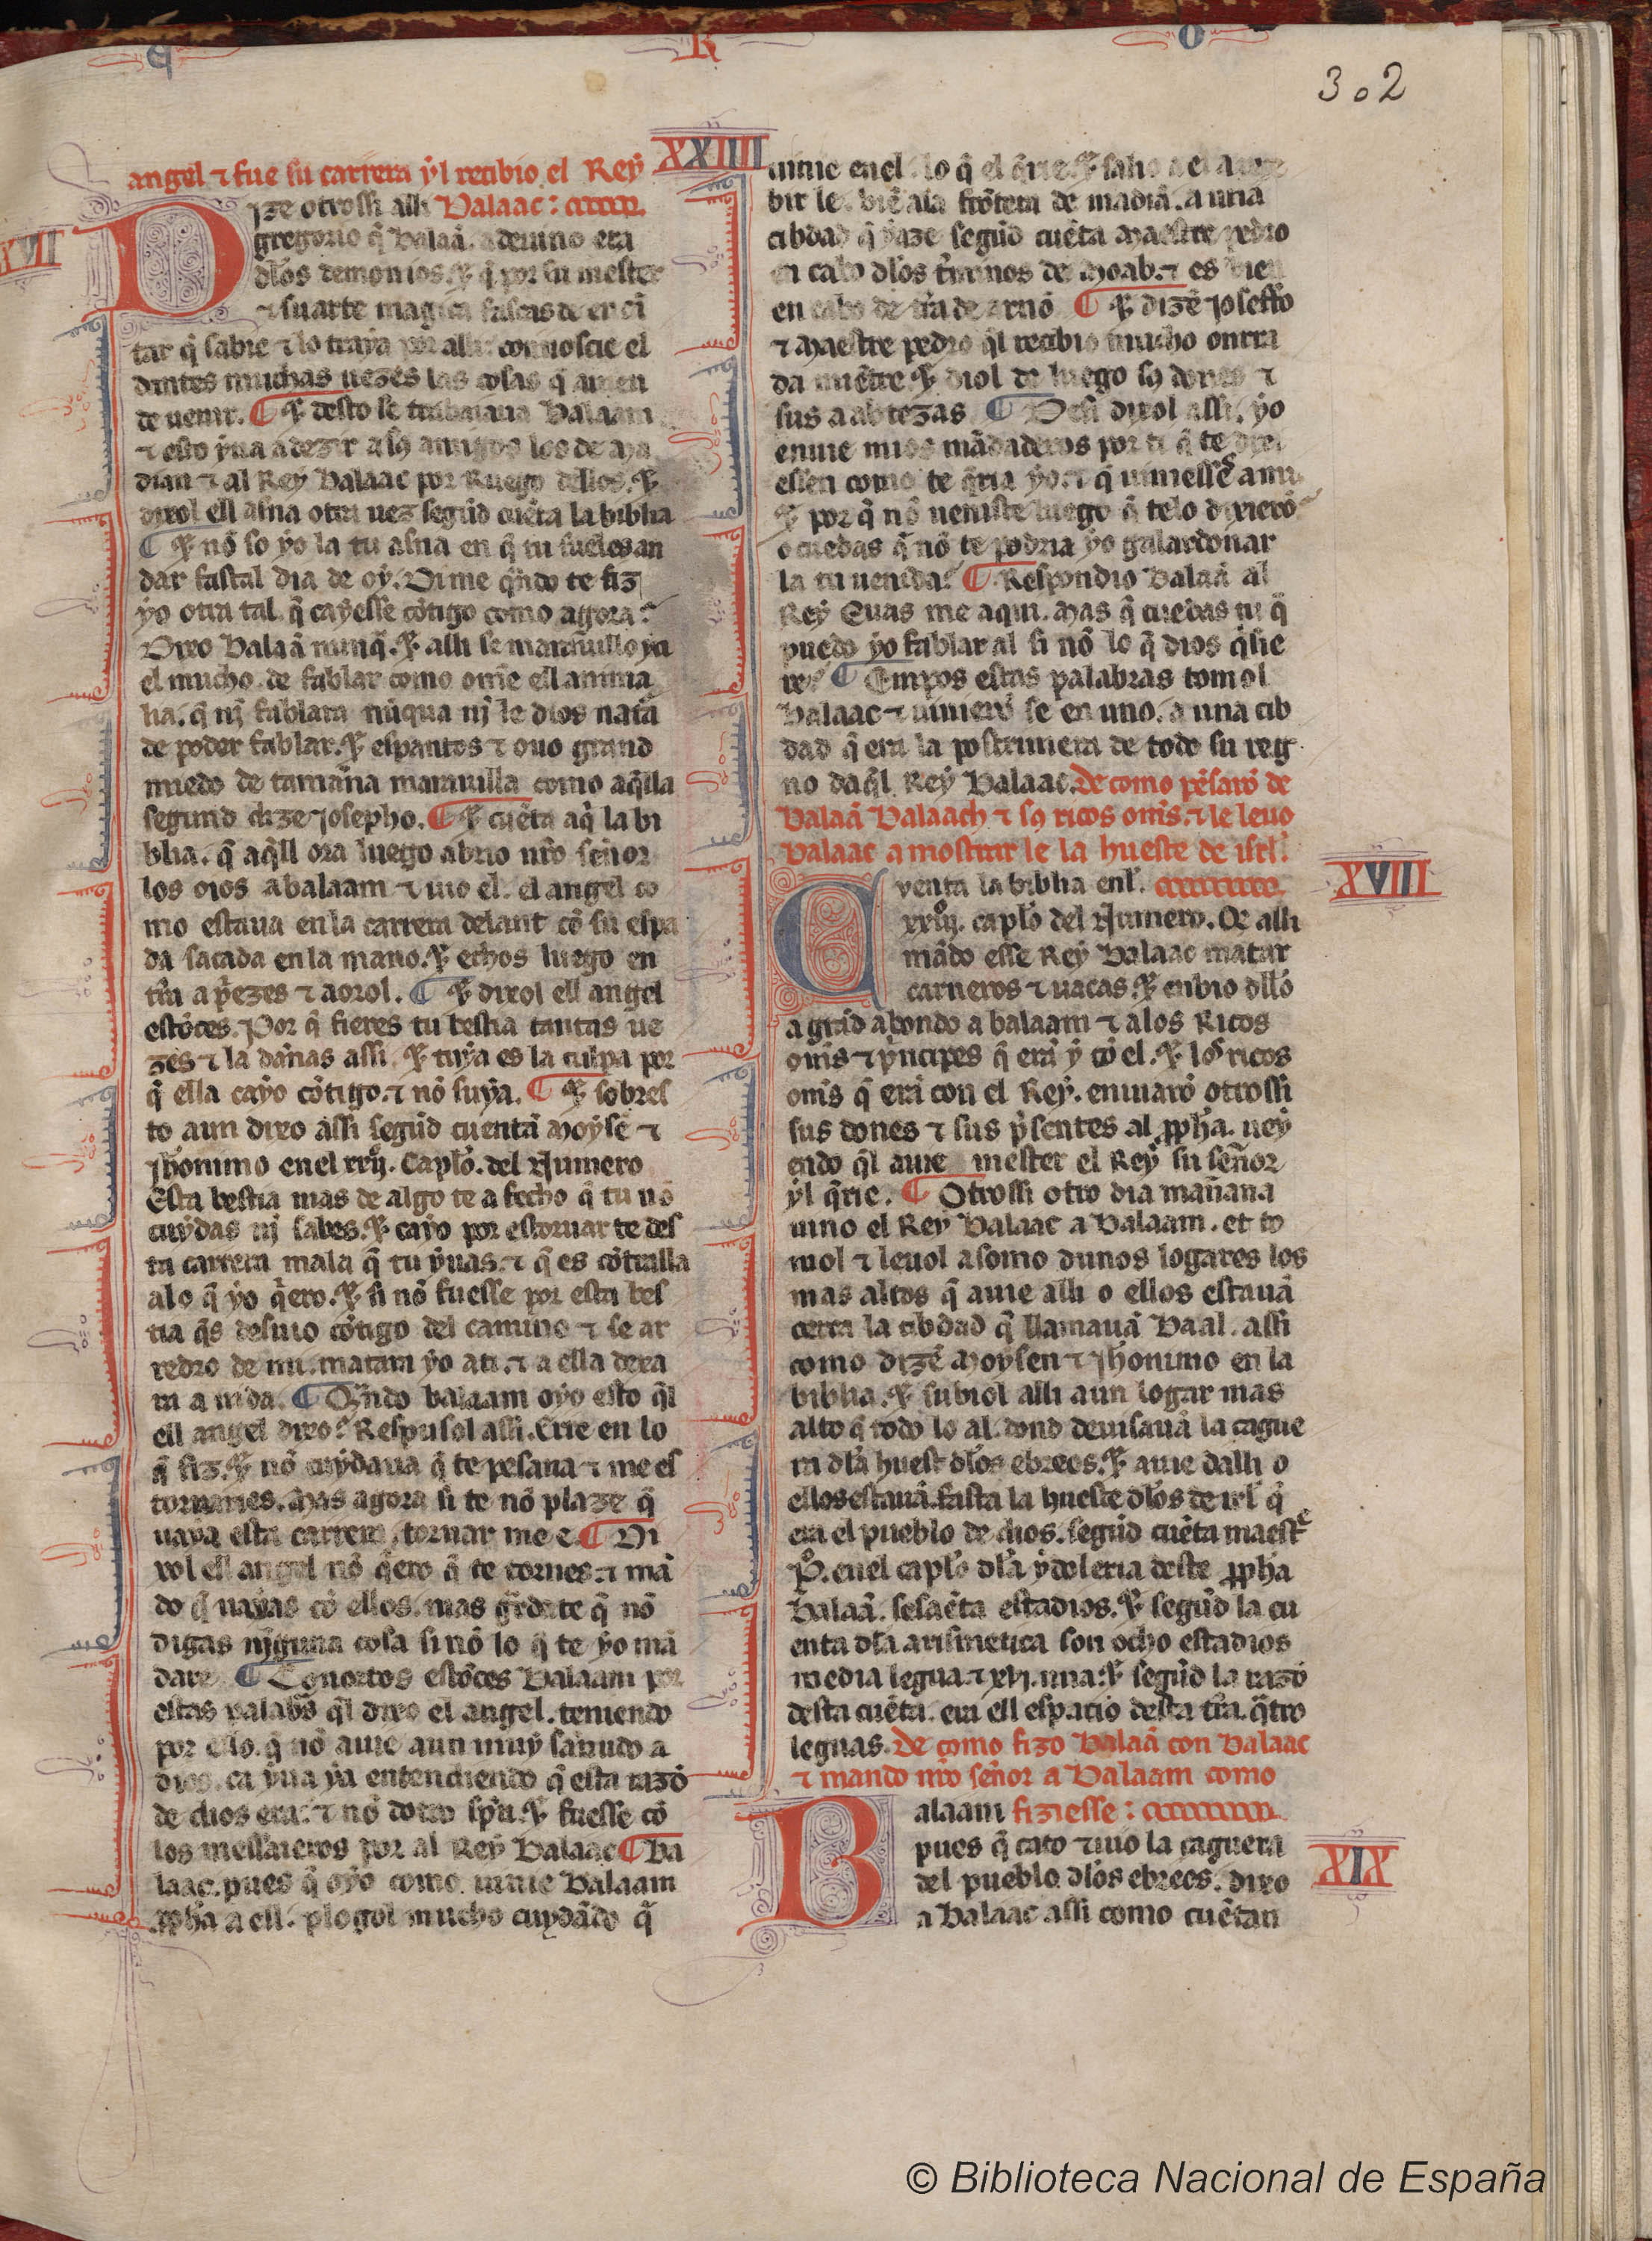 R
O
302
XXIIII
angel ⁊ fue su carrera ẏl recibio el Reẏ
XVII
Dize otrossi alli Balaac:
gregorio q̃ balaã. adeuino era
dl̃os demonios. ⁊ q̃ por su mester
⁊ su arte magica fascas de enc̃i
tar q̃ sabie ⁊ lo traẏa por alli. connoscie el
dantes muchas uezes las cosas q̃ auien
de uenir. ¶ ⁊ desto se trabaiaua Balaam
⁊ esto ẏua a dezir a sꝯ amigos los de Ma
dian ⁊ al Reẏ Balaac por Ruego dellos. ⁊
dixol ell asna otra uez segũd cuẽta la biblia
¶ ⁊ nõ so ẏo la tu asna en q̃ tu sueles an
dar fastal dia de oẏ. Dime q̃ndo te fiz
ẏo otra tal. q̃ caẏesse cõtigo como agora?
Dixo Balaã nunq̃. ⁊ alli se marauillo ẏa
el mucho. de fablar como om̃e ell anima
lia. q̃ nj̃ fablara nũqua nj̃ le dios nat̃a
de poder fablar. ⁊ espantos ⁊ ouo grand
miedo de tamaña marauilla como aq̃lla
segund dize Josepho. ¶ ⁊ cuẽta aq̃ la bi
blia. q̃ aq̃ll ora luego abrio nr̃o señor
los oios a balaam ⁊ uio el. el angel co
mo estaua en la carrera delant cõ su espa
da sacada en la mano. ⁊ echos luego en
tr̃a a p̃ezes ⁊ aorol. ¶ ⁊ dixol ell angel
estõces. Por q̃ fieres tu bestia tantas ue
zes ⁊ la dañas assi. ⁊ tuẏa es la culpa por
q̃ ella caẏo cõtigo. ⁊ nõ suẏa. ¶ ⁊ sobres
to aun dixo assi segũd cuentã Moẏsẽ ⁊
Jh̃onimo en el xxij. Capl̃o. del Numero
Esta bestia mas de algo te a fecho q̃ tu nõ
cuẏdas nj̃ sabes. ⁊ caẏo por estoruar te des
ta carrera mala q̃ tu ẏuas. ⁊ q̃ es cõtralla
a lo q̃ ẏo q̃ero. ⁊ si nõ fuesse por esta bes
tia q̃s desuio cõtigo del camino ⁊ se ar
redro de mi. matara ẏo a ti. ⁊ a ella dexa
ra a uida. ¶ Q̃ndo balaam oẏo esto q̃l
ell angel dixo? Respusol assi. Erre en lo
q̃ fiz. ⁊ nõ cuẏdaua q̃ te pesaua ⁊ me es
toruaues. Mas agora si te nõ plaze q̃
uaẏa esta carrera, tornar me e. ¶ Di
xol ell angel nõ q̃ero q̃ te tornes. ⁊ mã
do q̃ uaẏas cõ ellos. mas g̃rdate q̃ nõ
digas nj̃guna cosa si nõ lo q̃ te ẏo mã
dare. ¶ Conortos estõces Balaam por
estas palab̃s q̃l dixo el angel. teniendo
por ello. q̃ nõ auie aun muẏ sañudo a
dios. ca ẏua ẏa entendiendo q̃ esta razõ
de dios era. ⁊ nõ dotro sp̃u. ⁊ fuesse cõ
los messaieros por al Reẏ Balaac ¶ Ba
laac. pues q̃ oẏo como uinie Balaam
ꝓpha a ell. plogol mucho cuẏdãdo q̃
uinie en el. lo q̃ el q̃rie. ⁊ salio a el a rece
bir le. biẽ a la frõtera de madiã. a una
cibdad q̃ ẏaze segũd cuẽta Maestre pedro
en cabo dl̃os t̃minos de Moab. ⁊ es bien
en cabo de tr̃a de arnõ ¶ ⁊ dizẽ Joseffo
⁊ Maestre pedro q̃l recibio mucho onrra
da miẽtre. ⁊ diol de luego sꝯ dones ⁊
sus aabtezas ¶ Desi dixol assi. ẏo
enuie mios mãdaderos por ti q̃ te dixi
essen como te q̃ria ẏo. ⁊ q̃ uiniessẽ a mi.
⁊ por q̃ nõ ueniste luego q̃ telo dixierõ?
o cuedas q̃ nõ te podria ẏo galardonar
la tu uenida? ¶ Respondio Balaã al
Reẏ Euas me aqui. Mas q̃ cuedas tu q̃
puedo ẏo fablar al si nõ lo q̃ dios q̃sie
re? ¶ Empos estas palabras tomol
Balaac ⁊ uinierõ se en uno. a una cib
dad q̃ era la postrimera de todo su reg
no daq̃l Reẏ Balaac. De como pẽsarõ de
Balaã Balaach ⁊ sꝯ ricos om̃s. ⁊ le leuo
Balaac a mostrar le la hueste de isrl̃.
XVIII
Cuenta la biblia enl̃.
xxiij. capl̃o del Numero. Q̃ alli
mãdo esse Reẏ Balaac matar
carneros ⁊ uacas. ⁊ enbio dllo
a grãd abondo a balaam ⁊ a los Ricos
om̃s ⁊ p̃ncipes q̃ erã ẏ cõ el. ⁊ los ricos
om̃s q̃ erã con el Reẏ. enuiarõ otrossi
sus dones ⁊ sus p̃sentes al ꝓpha. ueẏ
endo q̃l auie mester el Reẏ su señor
ẏl q̃rie. ¶ Otrossi otro dia mañana
uino el Reẏ Balaac a Balaam. et to
mol ⁊ leuol a somo dunos logares los
mas altos q̃ auie alli o ellos estauã
cerca la cibdad q̃ llamauã Baal. assi
como dizẽ Moẏsen ⁊ Jh̃onimo en la
biblia. ⁊ subiol alli a un logar mas
alto q̃ todo lo al. dond deuisauã la çague
ra dl̃a huest dl̃os ebreos. ⁊ auie dalli o
ellos estauã. fasta la hueste dl̃os de irl̃ q̃
era el pueblo de dios. segũd cuẽta maestre
Po. en el capl̃o dl̃a ẏdoleria deste ꝓpha
Balaã. sesaẽta estadios. ⁊ segũd la cu
enta dl̃a arismetica son ocho estadios
media legua. ⁊ xvj. una. ⁊ segũd la razõ
desta cuẽta. era ell espacio desta tr̃a. q̃tro
leguas. De como fizo Balaã con Balaac
⁊ mando nr̃o señor a Balaam como
XIX
Balaam fiziesse:
pues q̃ cato ⁊ uio la çaguera
del pueblo dl̃os ebreos. dixo
a Balaac assi como cuẽtan
© Biblioteca Nacional de España